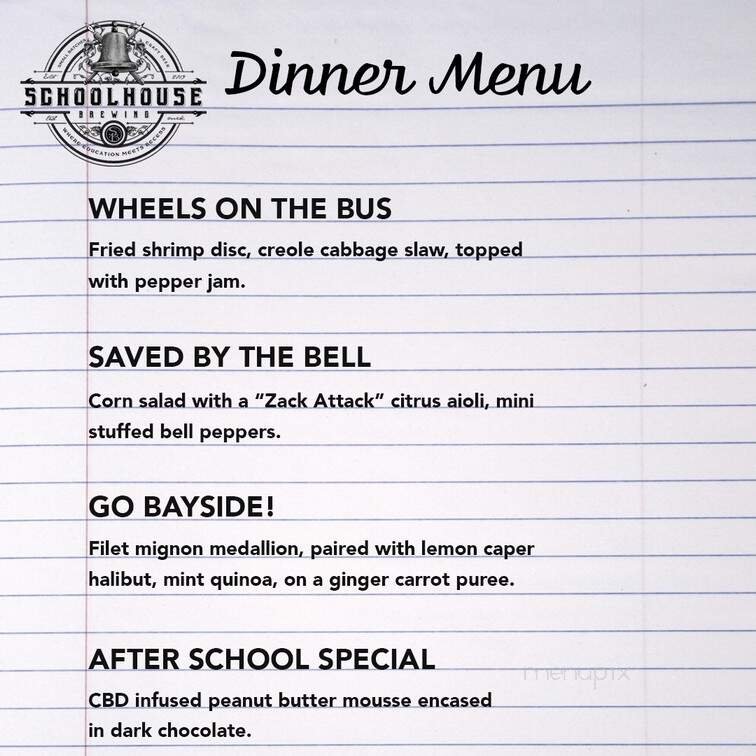 Dinner Menu
SMALL BATCHES CRAFT BEER
SCHOOLHOUSE
BREWING
WHERE EDUCATION MEETS RECESS
WHEELS ON THE BUS
Fried shrimp disc, creole cabbage slaw, topped
with pepper jam.
SAVED BY THE BELL
Corn salad with a “Zack Attack” citrus aioli, mini
stuffed bell peppers.
GO BAYSIDE!
Filet mignon medallion, paired with lemon caper
halibut, mint quinoa, on a ginger carrot puree.
AFTER SCHOOL SPECIAL
menupix
CBD infused peanut butter mousse encased
in dark chocolate.